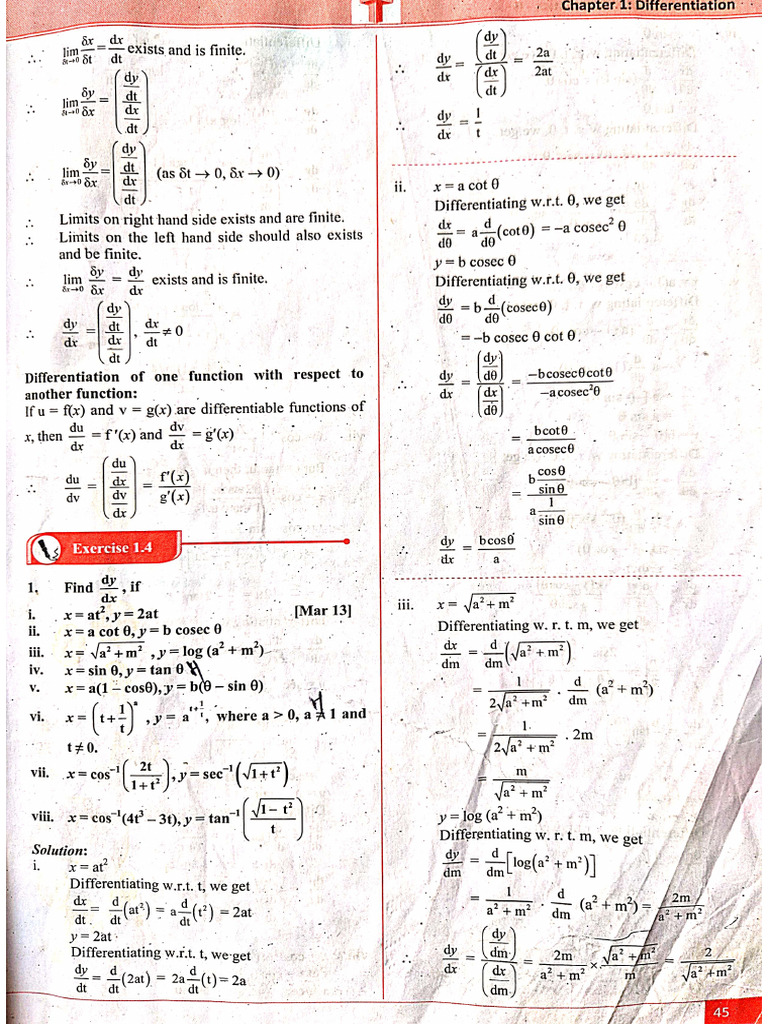 Chapter 1: Differentiation
∴ lim δt→0 δx/δt = dx/dt exists and is finite.
∴ lim δt→0 δy/δx = ((dy/dt)/(dx/dt))
∴ lim δx→0 δy/δx = ((dy/dt)/(dx/dt)) (as δt → 0, δx → 0)
∴ Limits on right hand side exists and are finite.
∴ Limits on the left hand side should also exists
and be finite.
∴ lim δx→0 δy/δx = dy/dx exists and is finite.
∴ dy/dx = ((dy/dt)/(dx/dt)), dx/dt ≠ 0
Differentiation of one function with respect to
another function:
If u = f(x) and v = g(x) are differentiable functions of
x, then du/dx = f '(x) and dv/dx = g'(x)
∴ du/dv = ((du/dx)/(dv/dx)) = f'(x)/g'(x)
Exercise 1.4
1. Find dy/dx, if
i. x = at², y = 2at [Mar 13]
ii. x = a cot θ, y = b cosec θ
iii. x = √(a² + m²) , y = log (a² + m²)
iv. x = sin θ, y = tan θ
v. x = a(1 – cosθ), y = b(θ – sin θ)
vi. x = (t + 1/t)ᵃ, y = a^(t + 1/t), where a > 0, a ≠ 1 and
t ≠ 0.
vii. x = cos⁻¹(2t/(1 + t²)), y = sec⁻¹(√(1 + t²))
viii. x = cos⁻¹(4t³ – 3t), y = tan⁻¹(√(1 – t²)/t)
Solution:
i. x = at²
Differentiating w.r.t. t, we get
dx/dt = d/dt (at²) = a d/dt (t²) = 2at
y = 2at
Differentiating w.r.t. t, we get
dy/dt = d/dt (2at) = 2a d/dt (t) = 2a
∴ dy/dx = ((dy/dt)/(dx/dt)) = 2a/2at
∴ dy/dx = 1/t
ii. x = a cot θ
Differentiating w.r.t. θ, we get
dx/dθ = a d/dθ (cot θ) = –a cosec² θ
y = b cosec θ
Differentiating w.r.t. θ, we get
dy/dθ = b d/dθ (cosec θ)
= –b cosec θ cot θ
∴ dy/dx = ((dy/dθ)/(dx/dθ)) = –b cosec θ cot θ/–a cosec²θ
= b cot θ/a cosec θ
= (b cos θ/sin θ)/(a 1/sin θ)
∴ dy/dx = b cosθ/a
iii. x = √(a² + m²)
Differentiating w. r. t. m, we get
dx/dm = d/dm (√(a² + m²))
= 1/(2√(a² + m²)) . d/dm (a² + m²)
= 1/(2√(a² + m²)) . 2m
= m/√(a² + m²)
y = log (a² + m²)
Differentiating w. r. t. m, we get
dy/dm = d/dm [log(a² + m²)]
= 1/(a² + m²) · d/dm (a² + m²) = 2m/(a² + m²)
∴ dy/dx = ((dy/dm)/(dx/dm)) = 2m/(a² + m²) × √(a² + m²)/m = 2/√(a² + m²)
45